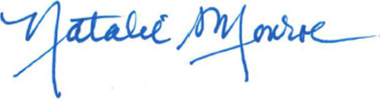 Natalie Monroe